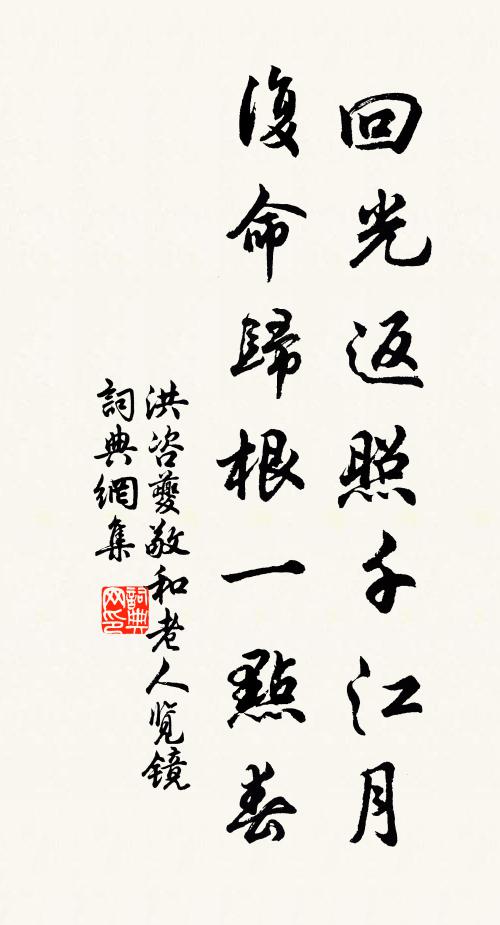 回光返照千江月
復命歸根一點春
洪咨夔敬和老人览镜
詞典網集
詞典网印